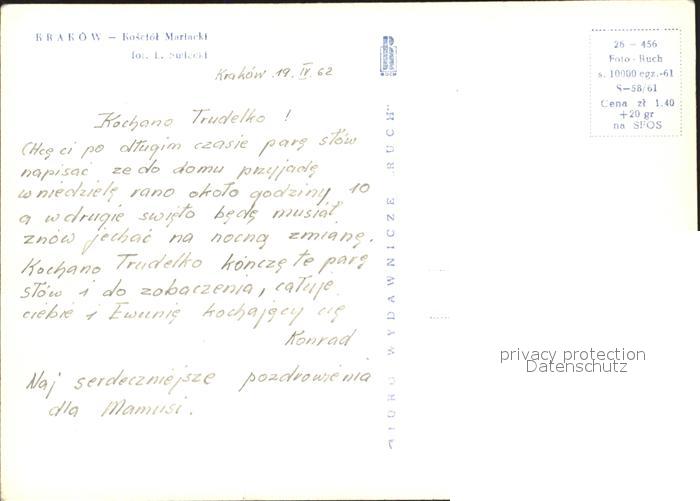 KRAKÓW — Kościół Mariacki
fot. L. Święcki
Kraków 19. IV. 62
Kochano Trudelko !
Chcę ci po długim czasie parę słów
napisać ze do domu przyjadę
w niedzielę rano około godziny 10
a w drugie swięto będę musiał
znów jechać na nocną zmianę.
Kochano Trudelko kończę te parę
słów i do zobaczenia, całuje
ciebie i Ewunię kochający cię
Konrad
Naj serdeczniejsze pozdrowienia
dla Mamusi.
BIURO WYDAWNICZE "RUCH"
26 — 456
Foto-Ruch
s. 10000 egz.-61
S-58/61
Cena zł 1.40
+20 gr
na SFOS
privacy protection
Datenschutz